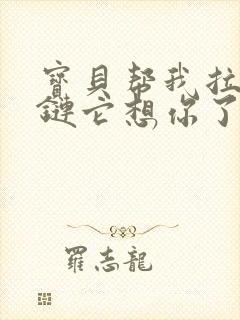 寶貝幫我拉
鏈它想你了
羅志龍